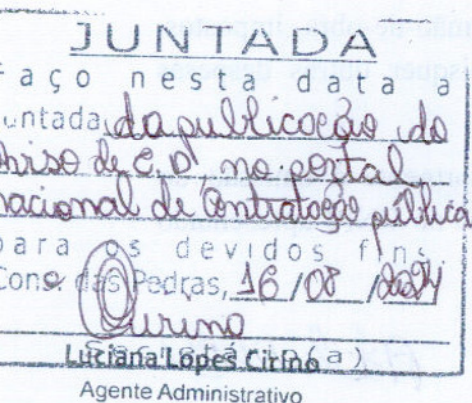 JUNTADA
Faço nesta data a
juntada da publicação do
Aviso de C.D. no portal
nacional de Contratação pública
para os devidos fins.
Cons. das Pedras, 16 / 08 / 2024
Cirino
Luciana Lopes Cirino (a)
Agente Administrativo